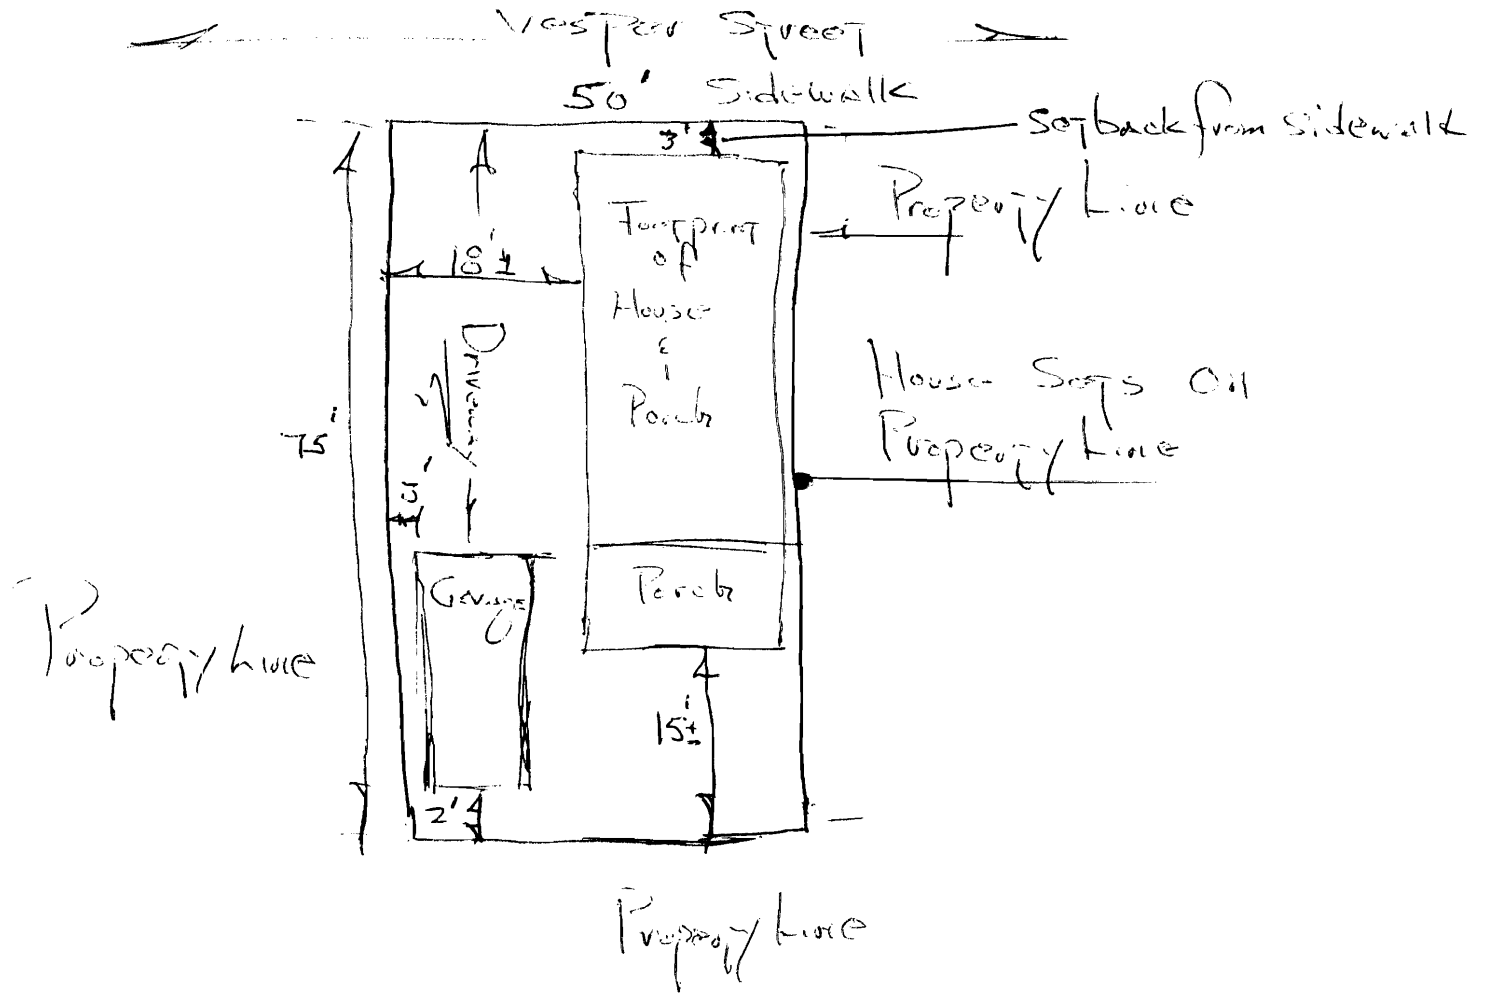 Vesper Street
50' Sidewalk
3'
Setback from Sidewalk
Property Line
Footprint
of
House
&
Porch
18'±
Driveway
House Sets On
Property Line
75'
2'
Garage
Porch
Property Line
15'±
2'
Property Line